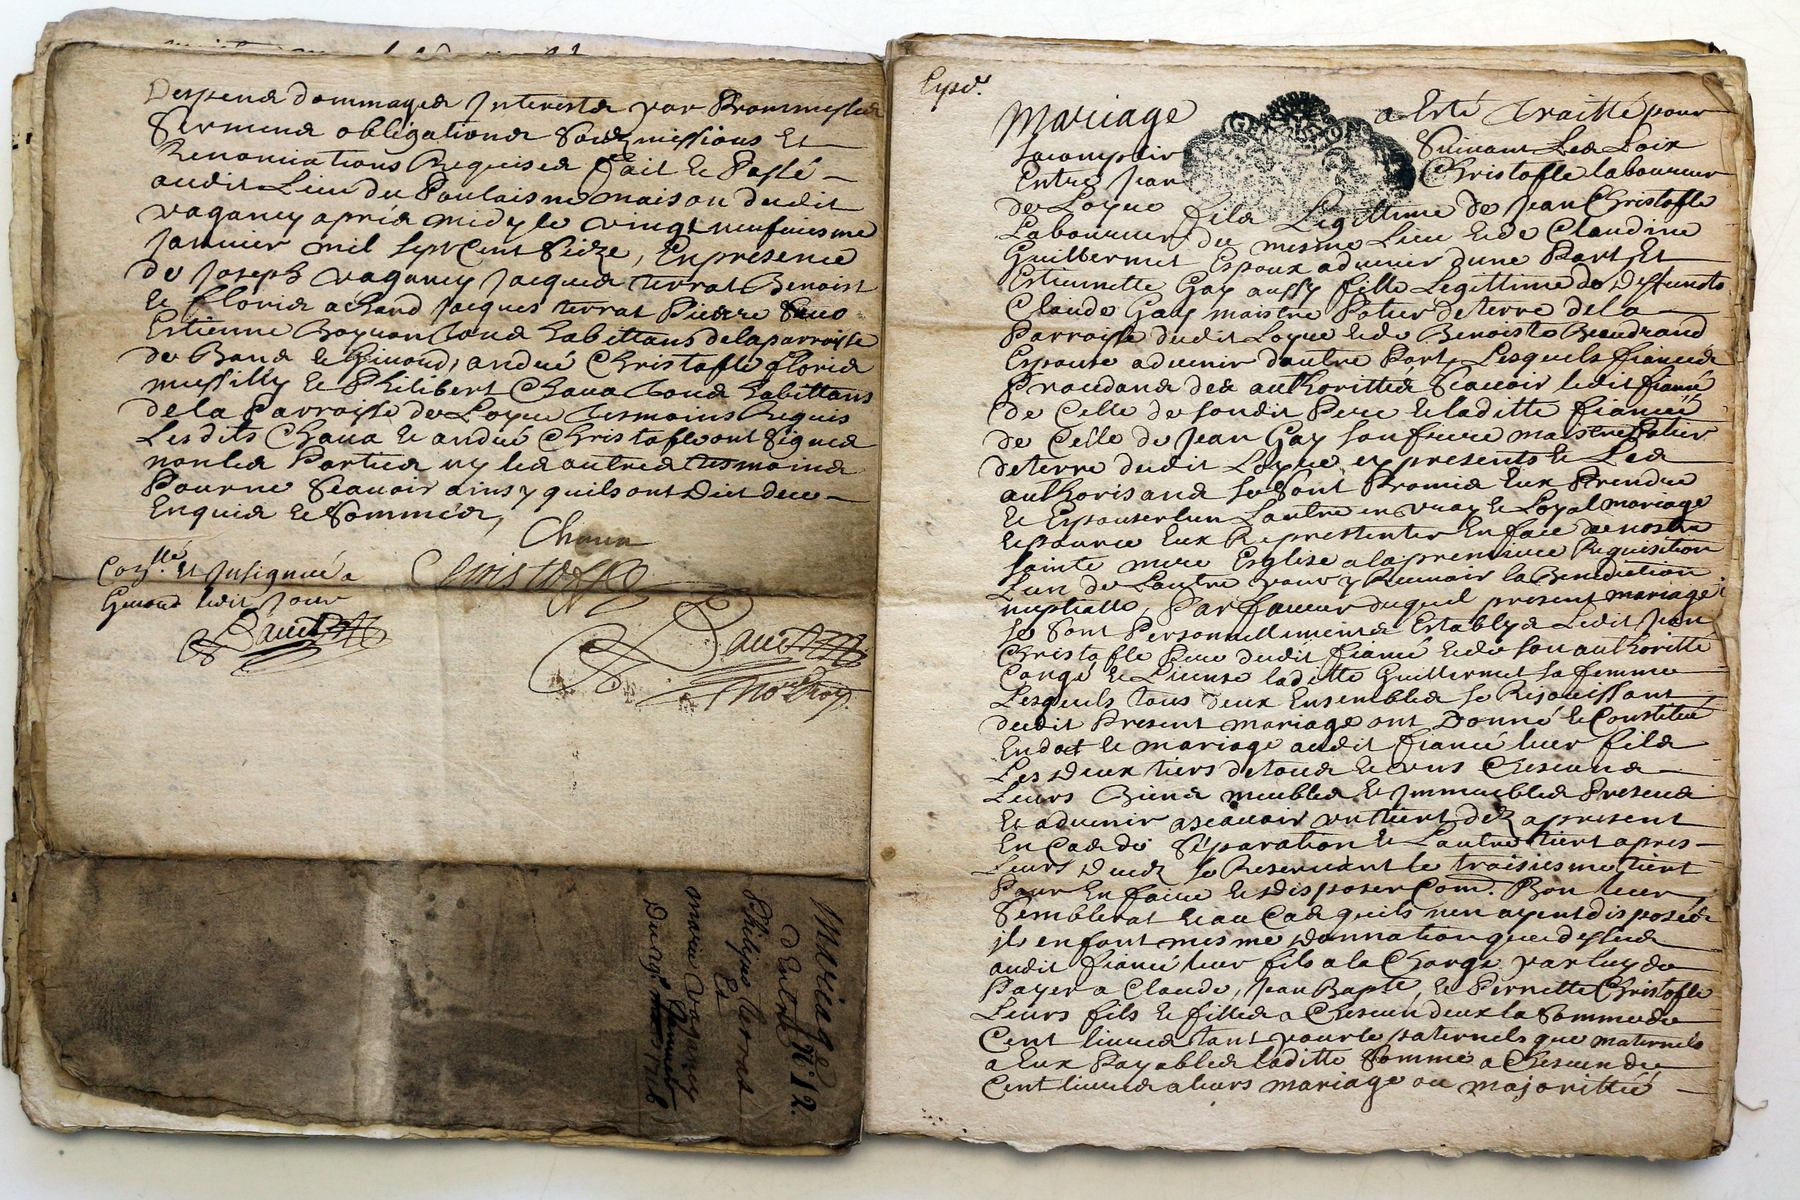 Despens dommages Interests par Prommesses
Sermens obligations Soubzmissions Et
Renontiations Requises fait Et Passé
audit Lieu du Poulais no maison dudit
vaganey apres midy le vingt neufuiesme
Januier mil Sept Cent Seize, En presence
de Joseph vaganey Jacques terrat Benoist
Et Floris achard Jacques terrat Pierre
Estienne tous habittans de la parroisse
de Bans Et Giuord, andré Christofle floris
mussilly Et Philibert Chaua tous habittans
de la Parroisse de Loyre tesmoins Requis
Lesdits Chaua Et andré Christofle ont Signés
non les Parties ny les autres tesmoins
Pour ne Scauoir ainsy quils ont dict de ce
Enquis Et Sommés,
Chaua
Coll.né Et Insignué a
Christofle
Giuord ledit Jour
Mariage
Entre
Philippe terrat
Et
marie Vaganey
Du 29e Januier 1716
N. 12.
Exped.
Mariage a Esté Traitté pour
Sacomplir Suiuant Les Loix
Entre Jean Christofle laboureur
de Loyre fils Legittime de Jean Christofle
Laboureur du mesme Lieu Et de Claudine
Guillermet Espoux aduenir dune Part, Et
Estiennette Gay aussy fille Legittime de deffuncts
Claude Gay maistre Potier de terre de la
Parroisse dudit Loyre Et de Benoiste Beaudrand
Espouse aduenir dautre Part, Lesquels fiancés
Procedans des authorittés Scauoir ledit fiancé
de Celle de Sondit Pere Et laditte fiancée
de Celle de Jean Gay Son frere maistre Potier
de terre dudit Loyre cy presents Et Les
authorisans Se Sont Promis Eux Prendre
Et Espouser lun Lautre en vray Et Loyal mariage
Et pource Eux Representer En face de nostre
Sainte mere Eglise a la premiere Requisition
Lun de Lautre pour y Receuoir la Benediction
nuptialle, Par faueur duquel present mariage
Se Sont Personnellements Establys Ledit Jean
Christofle Pere dudit fiancé Et de Son authoritté
Congé Et Licence laditte Guillermet Sa femme
Lesquels tous deux Ensembles Se Rejouissant
dudit Present mariage ont Donné Et Constitué
En dot Et mariage audit fiancé leur fils
Les deux tiers de tous Et vns Chescuns
Leurs Biens meubles Et Immeubles Presens
Et aduenir ascauoir vn tiert dez apresent
En Cas de Separation Et Lautre tiert apres
Leurs deces Se Reseruant le troisiesme tiert
Pour En faire Et disposer Com. Bon leur
Semblerat Et au Cas quils nen ayent disposés
ils en font mesme donnation que dessus
audit fiancé leur fils a la Charge par luy de
Payer a Claude, Jean Bapte, Et Pernette Christofle
Leurs fils Et filles a Chescun deux la Somme de
Cent liures tant pour le paternels que maternels
a Eux Payables laditte Somme a Chescun de
Cent liures a leurs mariage ou majoritté